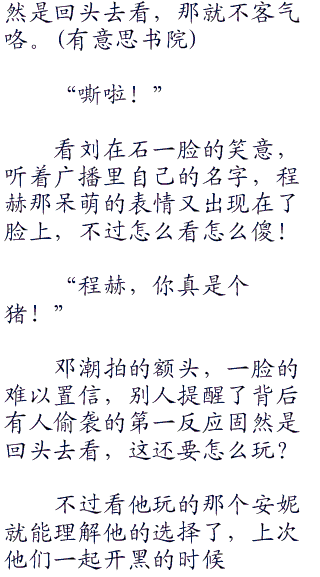 然是回头去看，那就不客气
咯。(有意思书院)
“嘶啦！”
看刘在石一脸的笑意，
听着广播里自己的名字，程
赫那呆萌的表情又出现在了
脸上，不过怎么看怎么傻！
“程赫，你真是个
猪！”
邓潮拍的额头，一脸的
难以置信，别人提醒了背后
有人偷袭的第一反应固然是
回头去看，这还要怎么玩？
不过看他玩的那个安妮
就能理解他的选择了，上次
他们一起开黑的时候